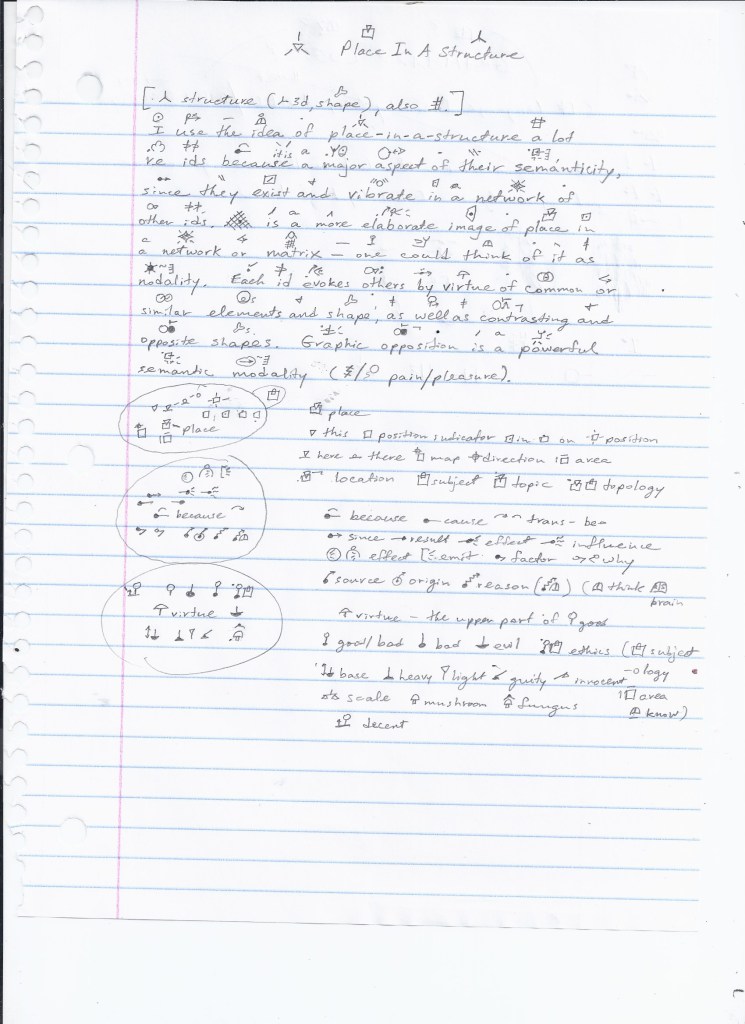 Place In A Structure
[ structure ( 3d, shape), also #. ]
I use the idea of place-in-a-structure a lot
it is a
re ids because a major aspect of their semanticity,
since they exist and vibrate in a network of
other ids. is a more elaborate image of place in
a network or matrix — one could think of it as
nodality. Each id evokes others by virtue of common or
similar elements and shape, as well as contrasting and
opposite shapes. Graphic opposition is a powerful
semantic modality ( / pain/pleasure).
place
place
this position indicator in on position
here there map direction area
location subject topic topology
because
because cause trans- be
since result effect influence
effect emit factor why
source origin reason ( ) ( think
brain
virtue
virtue - the upper part of good
good/bad bad evil ethics ( subject
-ology
base heavy light guilty innocent
area
scale mushroom fungus
know)
decent